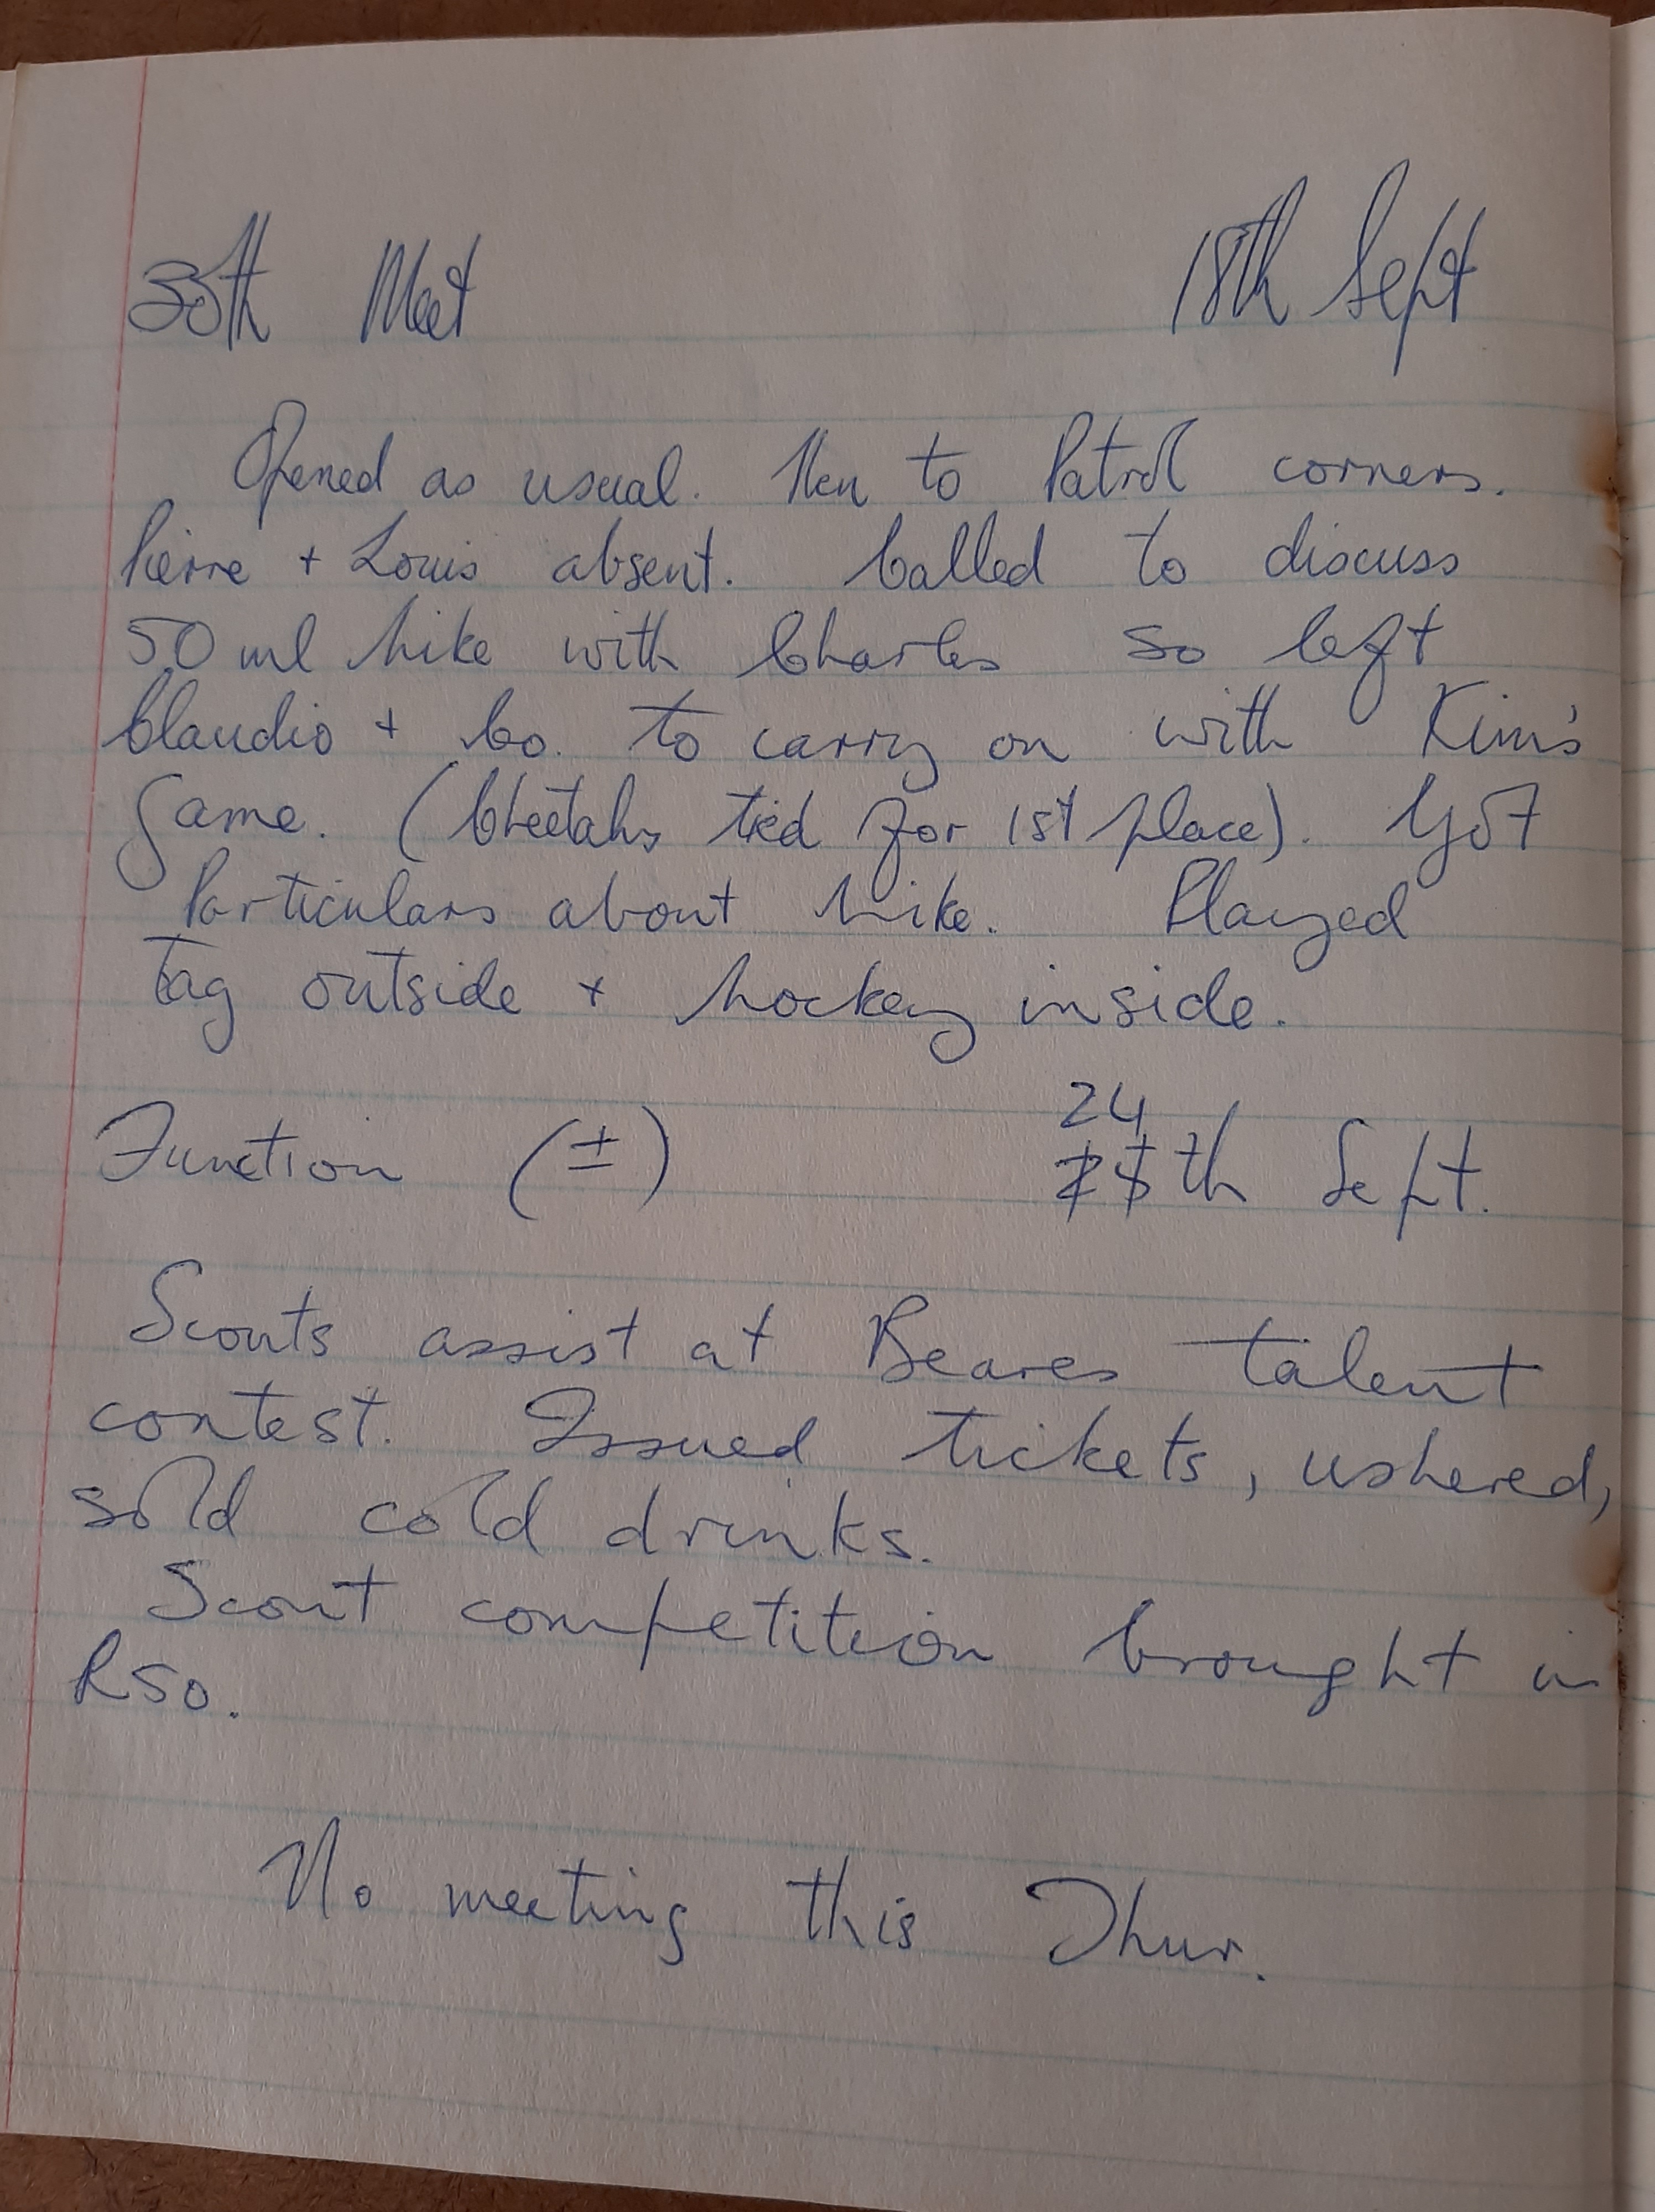 35th Meet 18th Sept
Opened as usual. Then to Patrol corners.
Pierre + Louis absent. Called to discuss
50 ml hike with Charles so left
Claudio + Co. to carry on with Kim's
Game. (Cheetahs tied for 1st place). Got
Particulars about hike. Played
Tag outside + hockey inside.
24
Function (±) 25th Sept.
Scouts assist at Beares talent
contest. Issued tickets, ushered,
sold cold drinks.
Scout competition brought in
R50.
No meeting this Thur.